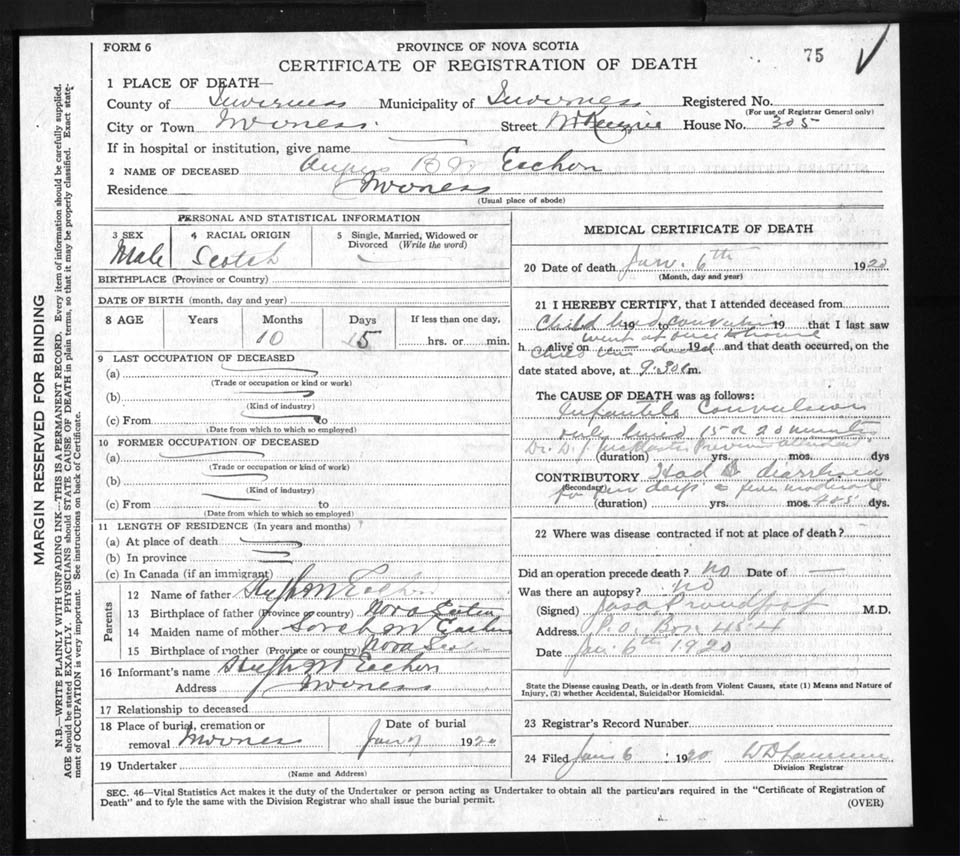 FORM 6
PROVINCE OF NOVA SCOTIA
75
CERTIFICATE OF REGISTRATION OF DEATH
1 PLACE OF DEATH—
County of Inverness Municipality of Inverness Registered No.
(For use of Registrar General only)
City or Town Inverness. Street McKenzie House No. 305
If in hospital or institution, give name
2 NAME OF DECEASED Angus B Mc Eachen
Residence Inverness
(Usual place of abode)
PERSONAL AND STATISTICAL INFORMATION
3 SEX 4 RACIAL ORIGIN 5 Single, Married, Widowed or Divorced (Write the word)
Male Scotch
BIRTHPLACE (Province or Country)
DATE OF BIRTH (month, day and year)
8 AGE Years Months Days If less than one day,
10 15 hrs. or min.
9 LAST OCCUPATION OF DECEASED
(a)
(Trade or occupation or kind or work)
(b)
(Kind of industry)
(c) From to
(Date from which to which so employed)
10 FORMER OCCUPATION OF DECEASED
(a)
(Trade or occupation or kind of work)
(b)
(Kind of industry)
(c) From to
(Date from which to which so employed)
11 LENGTH OF RESIDENCE (In years and months)
(a) At place of death
(b) In province
(c) In Canada (if an immigrant)
Parents
12 Name of father Hugh McEachen
13 Birthplace of father (Province or country) Nova Scotia
14 Maiden name of mother Sarah Mc Eachen
15 Birthplace of mother (Province or country) Nova Scotia
16 Informant's name Hugh McEachen
Address Inverness
17 Relationship to deceased
18 Place of burial, cremation or Date of burial
removal Inverness Jan 7 1920
19 Undertaker
(Name and Address)
MEDICAL CERTIFICATE OF DEATH
20 Date of death Jan. 6th 1920
(Month, day and year)
21 I HEREBY CERTIFY, that I attended deceased from
Child had convulsion 19 to 19 that I last saw
went at once
h alive on 19 and that death occurred, on the
child dead
date stated above, at 9.30 m.
The CAUSE OF DEATH was as follows:
Infantile Convulsion
only lived 15 or 20 minutes
Dr. D. J.
(duration) yrs. mos. dys
CONTRIBUTORY Had diarrhoea
(Secondary) for few days & fever moderate
(duration) yrs. mos. 4 or 5 dys.
22 Where was disease contracted if not at place of death?
Did an operation precede death? no Date of —
Was there an autopsy? no
(Signed) Proudfoot M.D.
Address P.O. Box 454
Date Jan. 6th 1920
State the Disease causing Death, or in death from Violent Causes, state (1) Means and Nature of
Injury, (2) whether Accidental, Suicidal or Homicidal.
23 Registrar's Record Number
24 Filed Jan 6 1920
Division Registrar
SEC. 46—Vital Statistics Act makes it the duty of the Undertaker or person acting as Undertaker to obtain all the particulars required in the "Certificate of Registration of
Death" and to fyle the same with the Division Registrar who shall issue the burial permit.
(OVER)
MARGIN RESERVED FOR BINDING
N.B.—WRITE PLAINLY WITH UNFADING INK—THIS IS A PERMANENT RECORD. Every item of information should be carefully supplied.
AGE should be stated EXACTLY. PHYSICIANS should STATE CAUSE OF DEATH in plain terms, so that it may be properly classified. Exact state-
ment of OCCUPATION is very important. See instructions on back of Certificate.